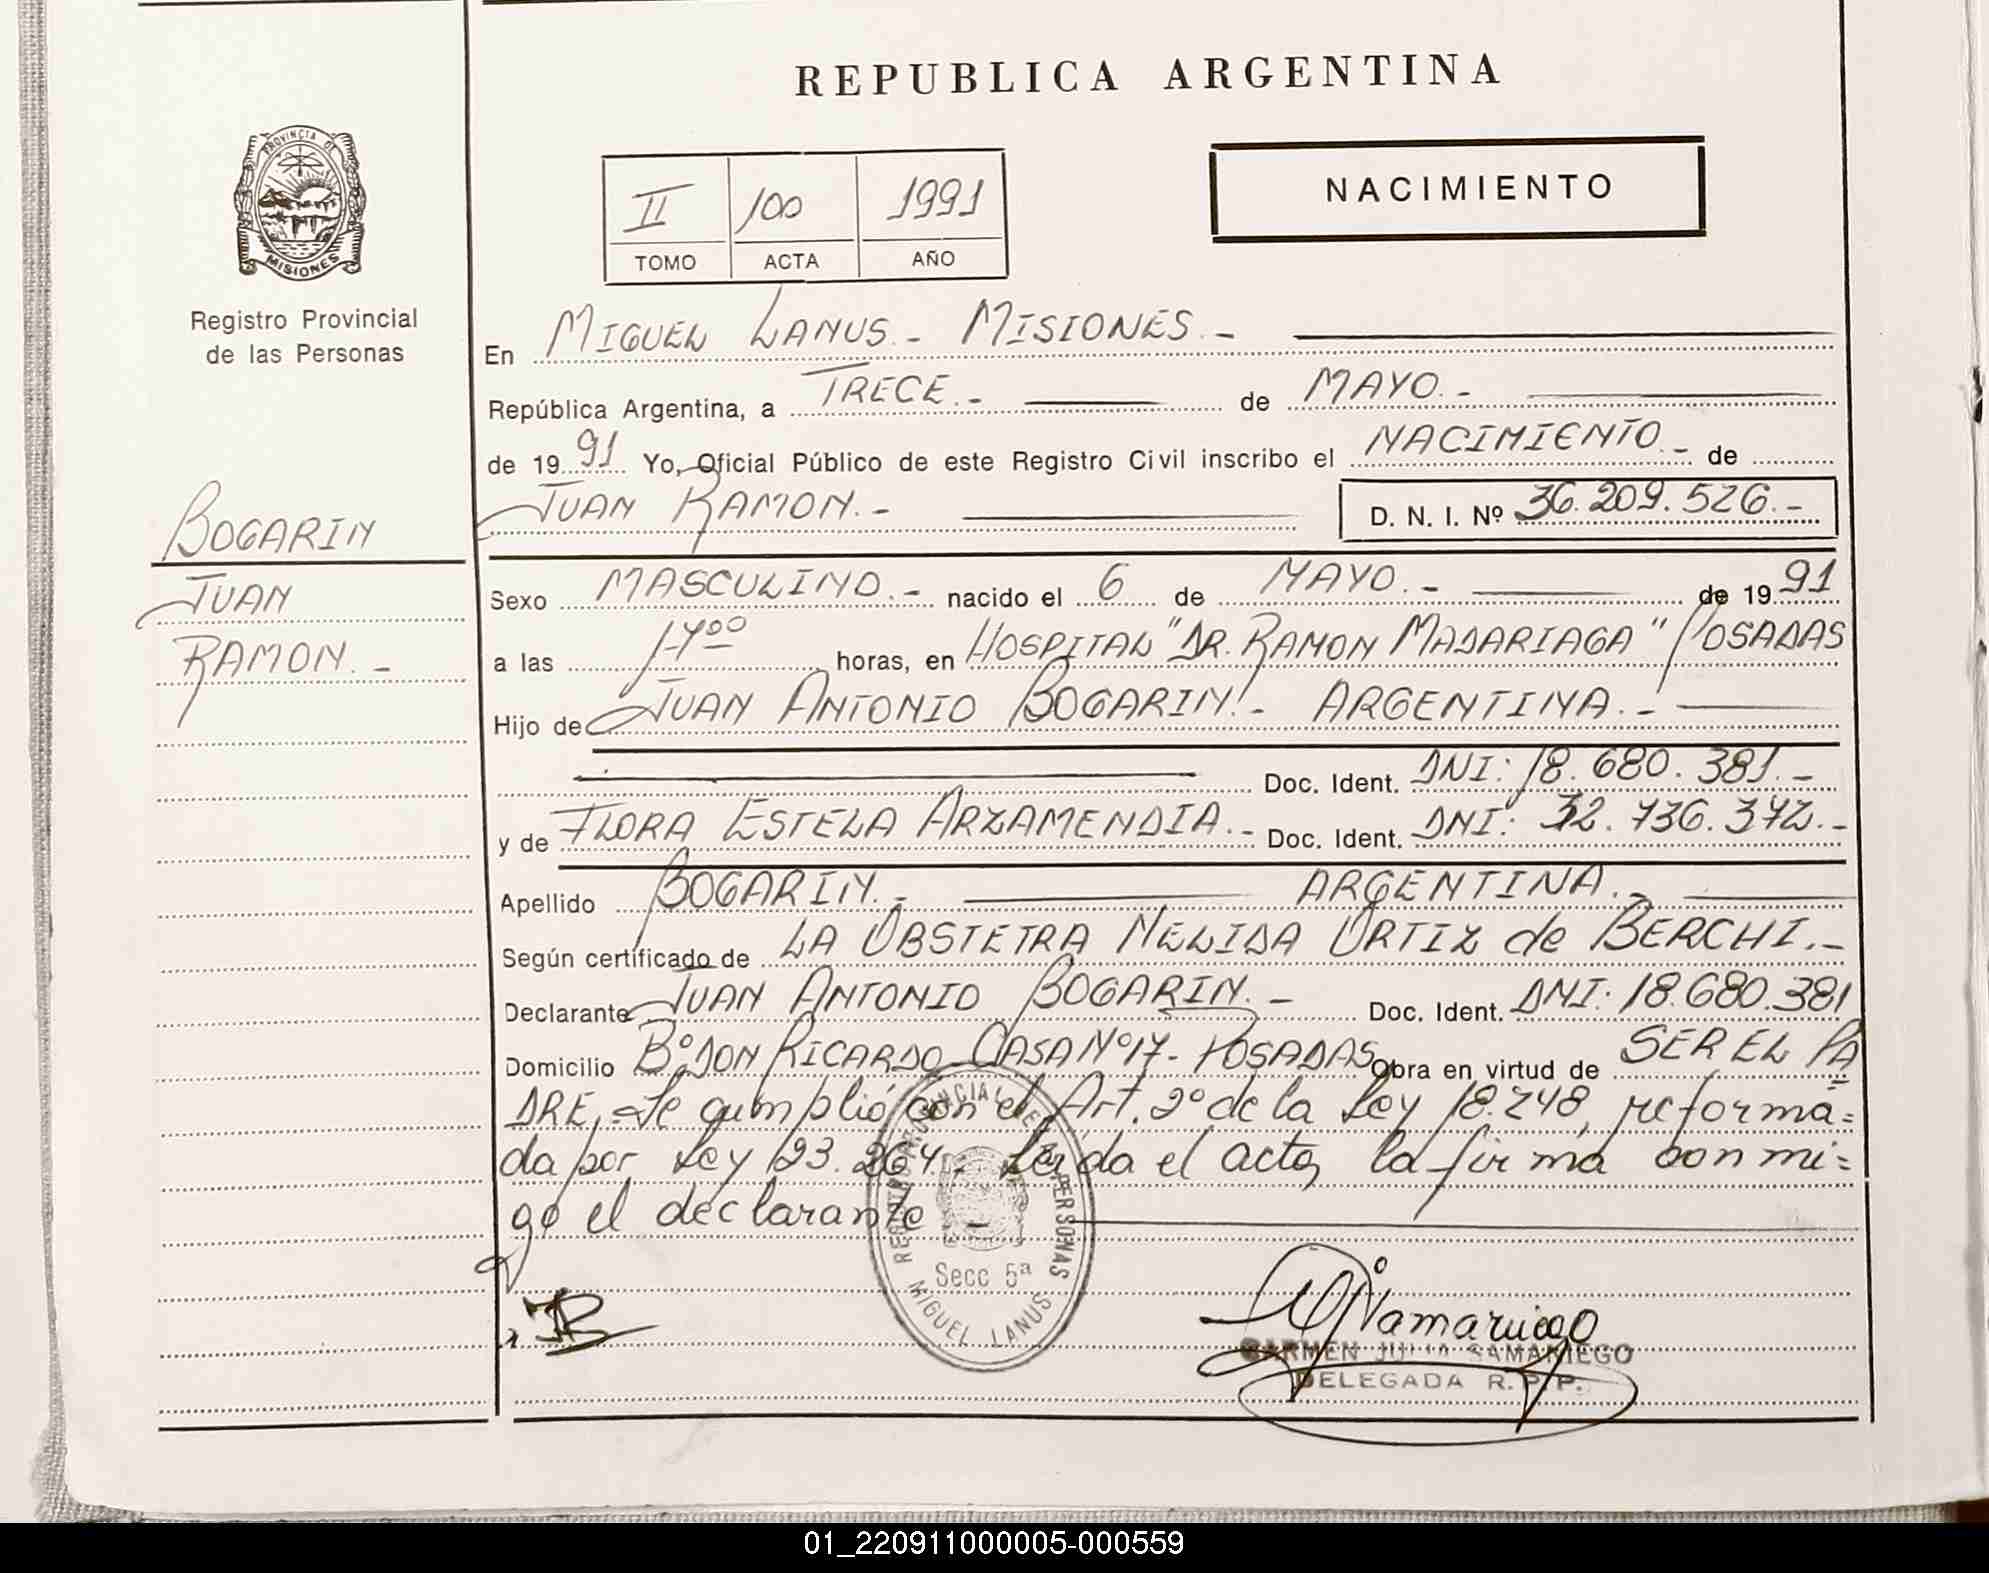 REPUBLICA ARGENTINA
PROVINCIA DE
MISIONES
Registro Provincial
de las Personas
NACIMIENTO
II 100 1991
TOMO ACTA AÑO
En MIGUEL LANUS.- MISIONES.-
República Argentina, a TRECE.- de MAYO.-
de 1991 Yo, Oficial Público de este Registro Civil inscribo el NACIMIENTO.- de
JUAN RAMON.- D. N. I. Nº 36.209.526.-
BOGARIN
JUAN
RAMON.-
Sexo MASCULINO.- nacido el 6 de MAYO.- de 1991
a las 17⁰⁰ horas, en HOSPITAL "DR. RAMON MADARIAGA" POSADAS
Hijo de JUAN ANTONIO BOGARIN.- ARGENTINA.-
Doc. Ident. DNI: 18.680.381.-
y de FLORA ESTELA ARZAMENDIA.- Doc. Ident. DNI: 32.736.372.-
Apellido BOGARIN.- ARGENTINA.-
Según certificado de LA OBSTETRA NELIDA ORTIZ de BERCHI.-
Declarante JUAN ANTONIO BOGARIN.- Doc. Ident. DNI: 18.680.381
Domicilio Bº DON RICARDO CASA Nº 17- POSADAS Obra en virtud de SER EL PA
DRE.- Se cumplió con el Art. 2º de la Ley 18.248, reforma=
da por Ley 23.264.- Leída el acta, la firma conmi=
go el declarante
REGISTRO PROVINCIAL DE LAS PERSONAS
Secc 5ª
MIGUEL LANUS
JB
Samaniego
CARMEN JULIA SAMANIEGO
DELEGADA R.P.P.
01_220911000005-000559